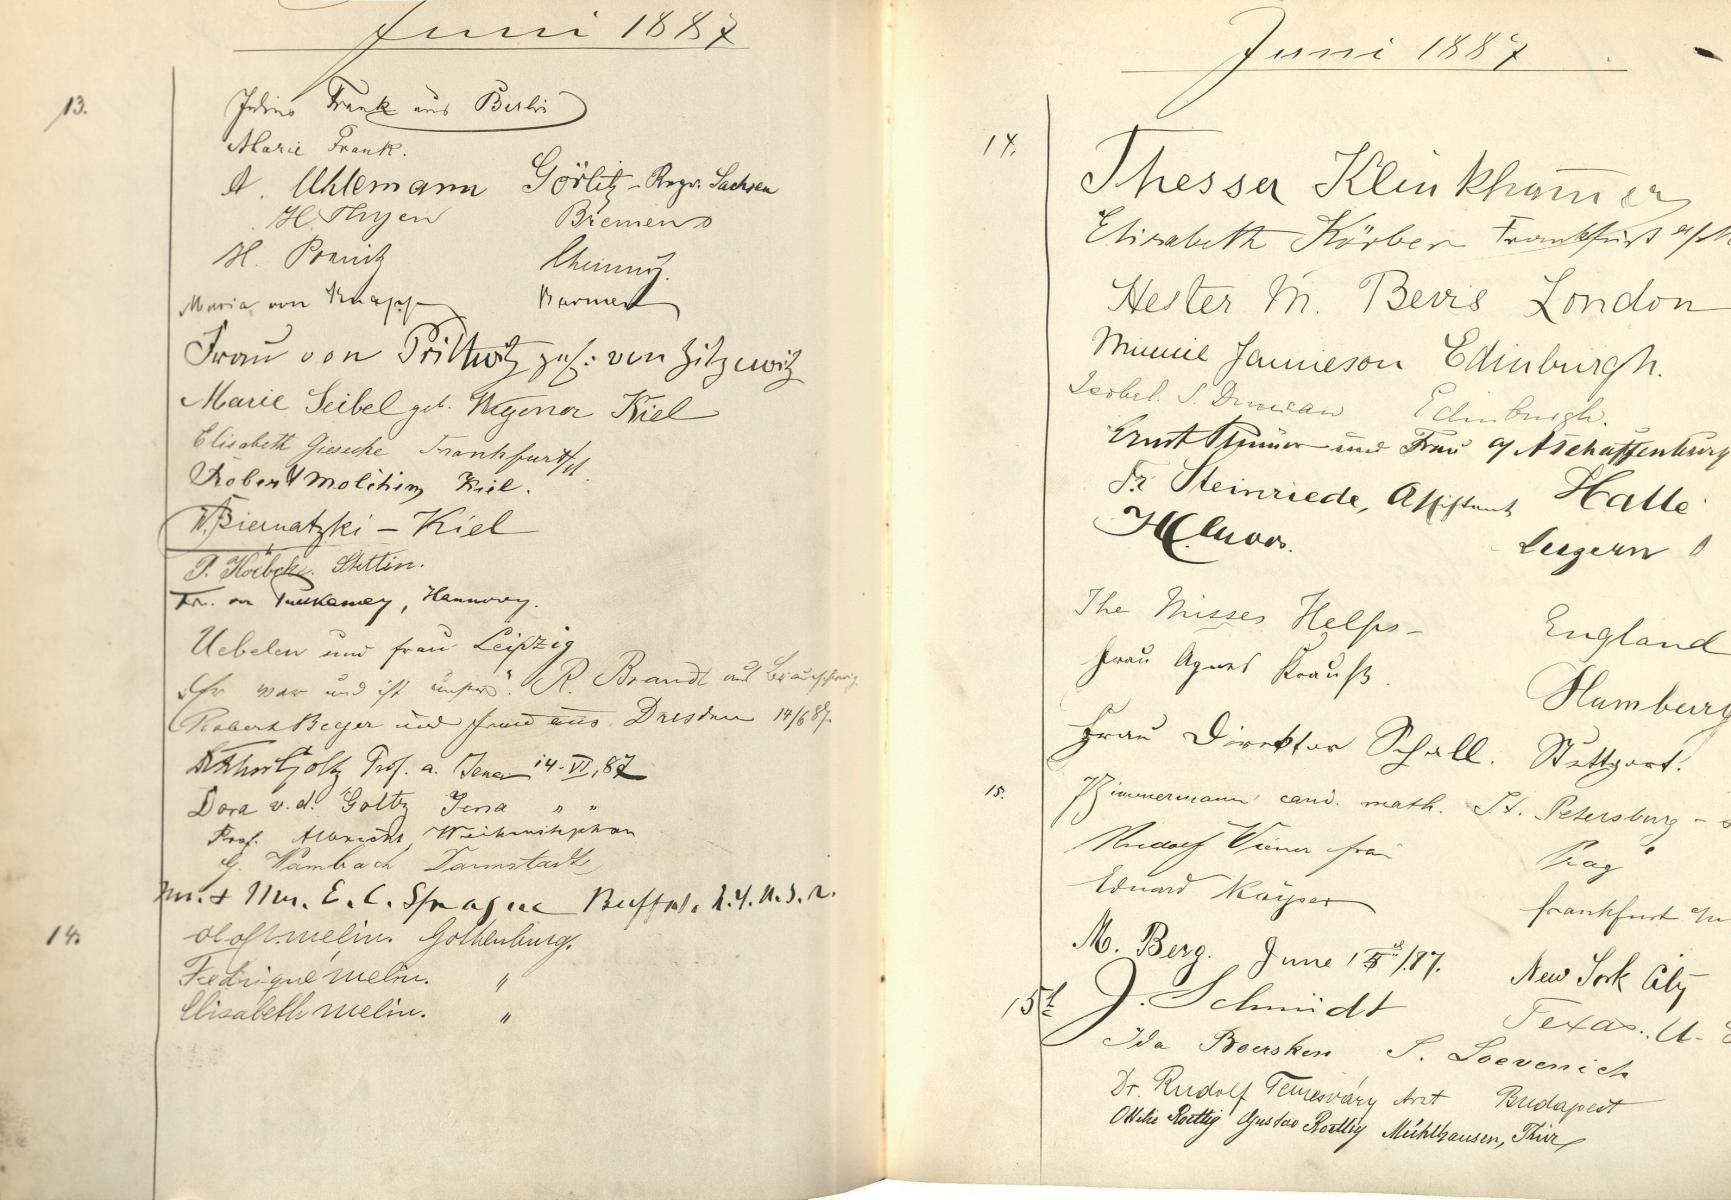 Juni 1887
13.
Julius Frank aus Berlin
Marie Frank.
A. Uhlemann Görlitz - Sachsen
H. Thyen Bremen
H. Chemnitz.
Maria von Knapp Barmen
Frau von Prittwitz geb: von Zitzewitz
Marie Seibel geb. Wegener Kiel
Elisabeth Giesecke Frankfurt
Robert Kiel.
W. Biernatzki - Kiel
P. Stettin.
Fr. Hannover.
Uebelen und frau Leipzig
war und ist R. Brandt aus
Robert Beyer und Frau aus Dresden 14/6 87.
Goltz Prof. a. Jena 14. VI, 87
Dora v. d. Goltz Jena " "
Prof. Albrecht,
G. Wambach Darmstadt
Mr. + Mrs. E. C. Sprague Buffalo. N.Y. U.S.A.
14.
Olof Melin. Gothenburg.
Fedrique Melin. "
Elisabeth Melin. "
Juni 1887
14.
Thessa Klinkhamer
Elisabeth Körber Frankfurt a/M
Hester M. Bevis London
Minnie Jamieson Edinburgh.
Isobel. S. Duncan Edinburgh.
Ernst und Frau Aschaffenburg
Fr. Steinriede, Assistent Halle
Luzern
The Misses Helps- England
Frau Agnes Krauß. Hamburg
Frau Direktor Schall. Stuttgart.
15.
Zimmermann cand. math. St. Petersburg -
Rudolf Wiener Prag
Eduard Kayser Frankfurt
M. Berg. June /87. New York City
15th
J. Schmidt Texas. U.
Ida S. Loevenich
Dr. Rudolf Temesváry Arzt Budapest
Ottilie Roettig Gustav Roettig Mühlhausen, Thür